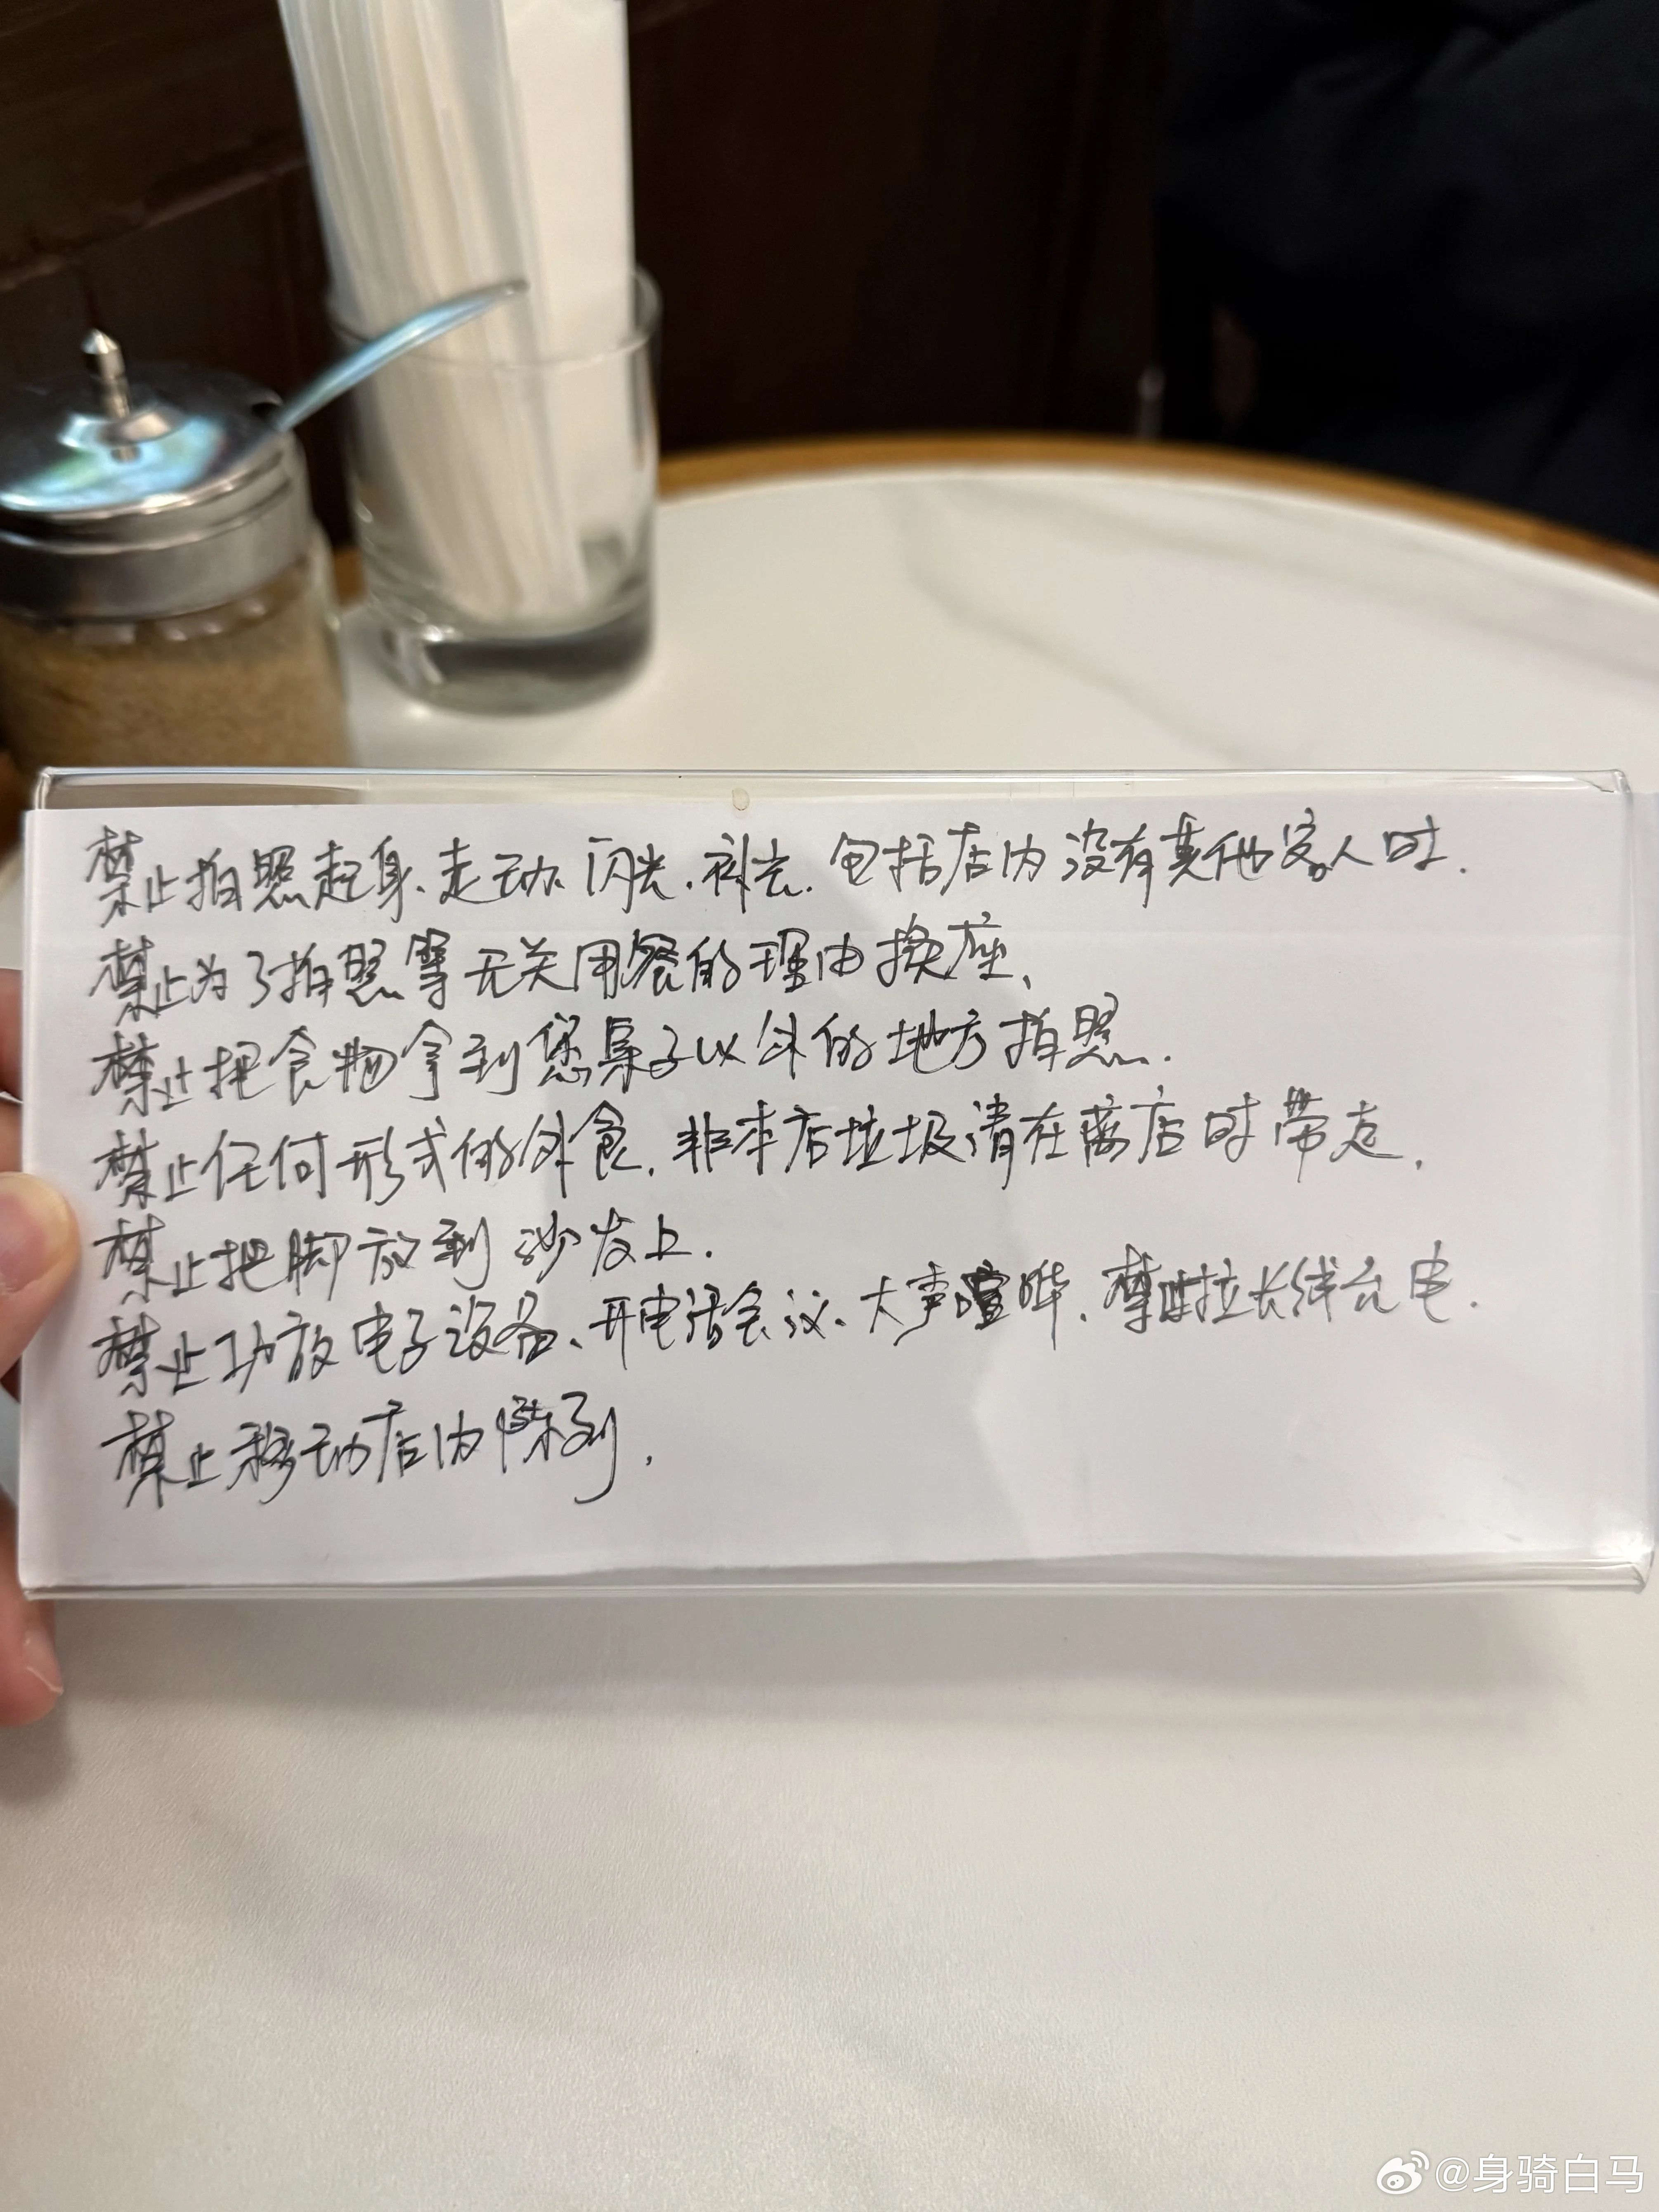 禁止拍照起身、走动、闪光、补光.包括店内没有其他客人时.
禁止为了拍照等无关用餐的理由换座、
禁止把食物拿到您桌子以外的地方拍照.
禁止任何形式的外食.非本店垃圾请在离店时带走.
禁止把脚放到沙发上.
禁止功放电子设备、开电话会议、大声喧哗、禁止拉长线充电.
禁止移动店内陈列.
@身骑白马